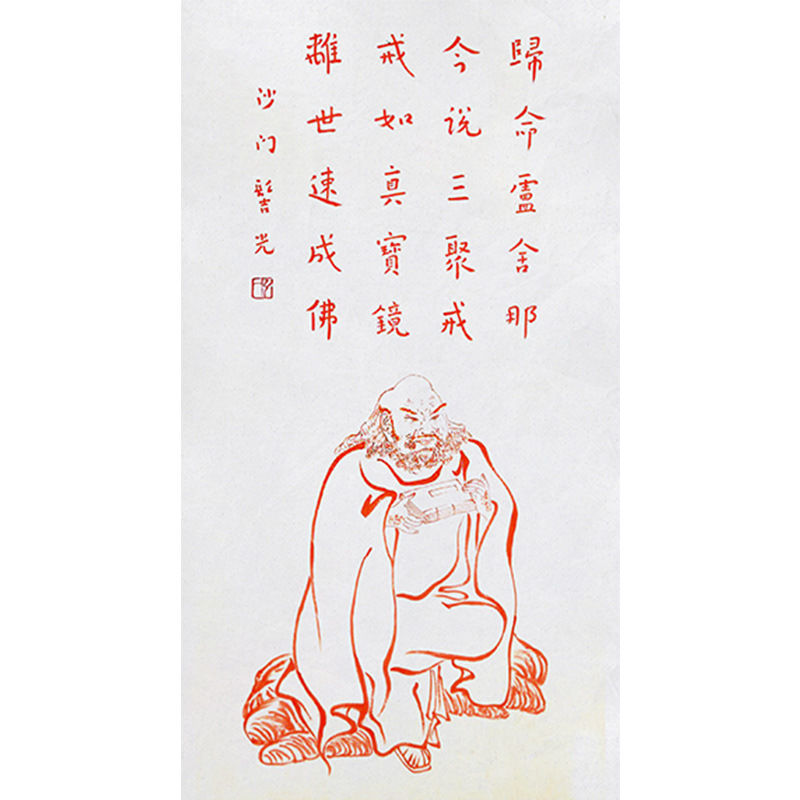 歸命盧舍那
今说三聚戒
戒如真寶鏡
離世速成佛
沙门髻光